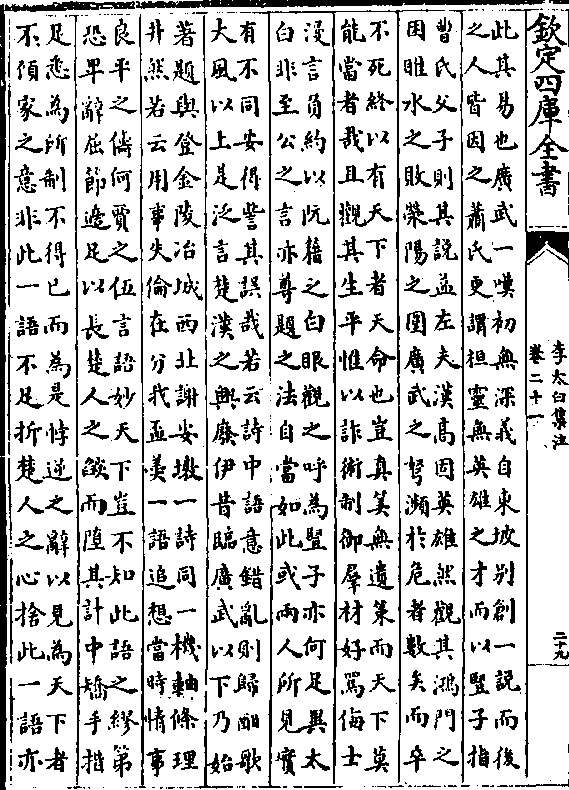 欽定四庫全書
李太白集注
卷二十一
二十九
此其易也廣武一嘆初無深義自東坡別創一說而後
之人皆因之蕭氏更謂桓靈無英雄之才而以豎子指
曹氏父子則其說益左夫漢高固英雄然觀其鴻門之
困睢水之敗滎陽之圍廣武之弩瀕於危者數矣而卒
不死終以有天下者天命也豈真筭無遺策而天下莫
能當者哉且觀其生平惟以詐術制御羣材好罵侮士
漫言負約以阮籍之白眼觀之呼為豎子亦何足異太
白非至公之言亦尊題之法自當如此或兩人所見實
有不同安得訾其誤哉若云詩中語意錯亂則歸酣歌
大風以上是泛言楚漢之興廢伊昔臨廣武以下乃始
著題與登金陵冶城西北謝安墩一詩同一機軸條理
井然若云用事失倫在分我盃羹一語追想當時情事
良平之儔何賈之伍言語妙天下豈不知此語之繆第
恐卑辭屈節適足以長楚人之燄而墮其計中矯手指
足悉為所制不得已而為是悖逆之辭以見為天下者
不頋家之意非此一語不足折楚人之心捨此一語亦